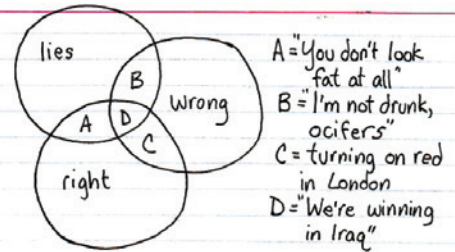 lies
B
wrong
A
D
C
right
A="You don't look
fat at all"
B="I'm not drunk,
ocifers"
C=turning on red
in London
D="We're winning
in Iraq"